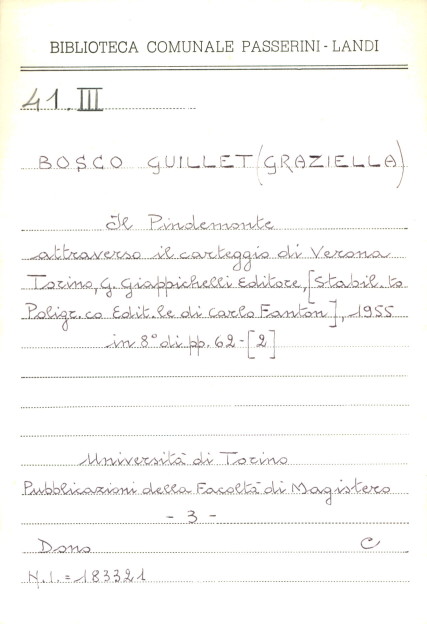 BIBLIOTECA COMUNALE PASSERINI - LANDI
41.III
BOSCO GUILLET (GRAZIELLA)
Il Pindemonte
attraverso il carteggio di Verona
Torino, G. Giappichelli Editore, [Stabil.to
Poligr.co Edit.le di Carlo Fanton], 1955
in 8° di pp. 62-[2]
Università di Torino
Pubblicazioni della Facoltà di Magistero
- 3 -
Dono C
N.I. = 183321